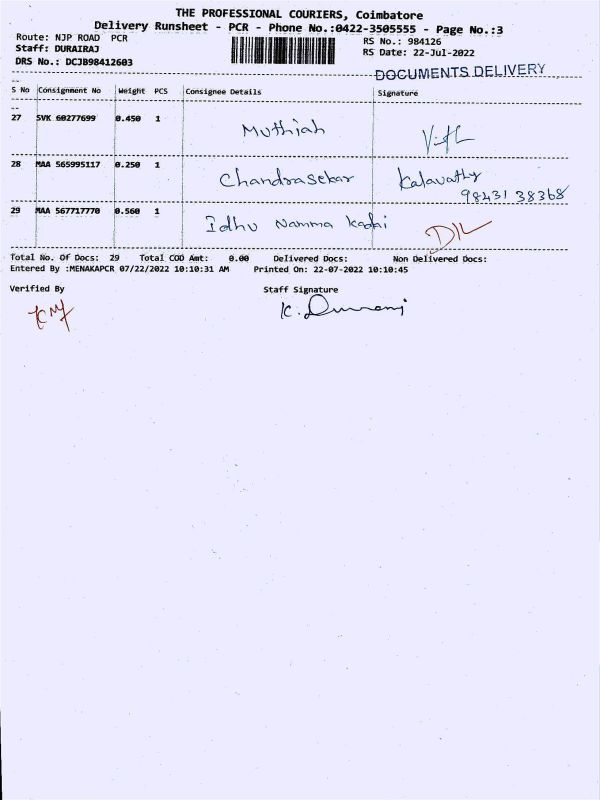 THE PROFESSIONAL COURIERS, Coimbatore
Delivery Runsheet - PCR - Phone No.:0422-3505555 - Page No.:3
Route: NJP ROAD PCR RS No.: 984126
Staff: DURAIRAJ RS Date: 22-Jul-2022
DRS No.: DCJB98412603
DOCUMENTS DELIVERY
S No Consignment No Weight PCS Consignee Details Signature
27 SVK 60277699 0.450 1 Muthiah
28 MAA 565995117 0.250 1 Chandrasekar Kalavathy
98431 38368
29 MAA 567717770 0.560 1 Idhu Namma Kadai
Total No. Of Docs: 29 Total COD Amt: 0.00 Delivered Docs: Non Delivered Docs:
Entered By :MENAKAPCR 07/22/2022 10:10:31 AM Printed On: 22-07-2022 10:10:45
Verified By Staff Signature